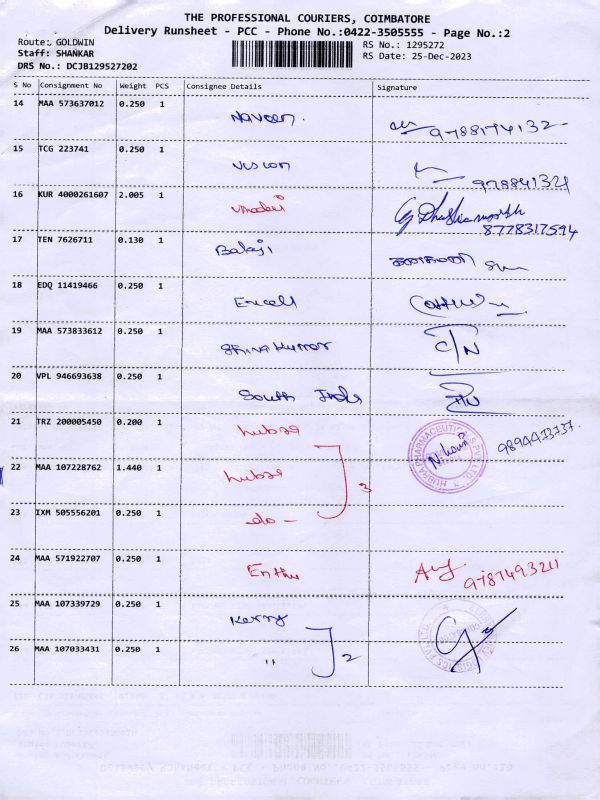 THE PROFESSIONAL COURIERS, COIMBATORE
Delivery Runsheet - PCC - Phone No.:0422-3505555 - Page No.:2
Route: GOLDWIN
Staff: SHANKAR
DRS No.: DCJB129527202
RS No.: 1295272
RS Date: 25-Dec-2023
S No Consignment No Weight PCS Consignee Details Signature
14 MAA 573637012 0.250 1 Naveen. 9788174132
15 TCG 223741 0.250 1 Vision 978841321
16 KUR 4000261607 2.005 1
8778317594
17 TEN 7626711 0.130 1 Balaji
18 EDQ 11419466 0.250 1 Excell
19 MAA 573833612 0.250 1 Shiva Kumar
20 VPL 946693638 0.250 1 South India
21 TRZ 200005450 0.200 1
22 MAA 107228762 1.440 1
3
23 IXM 505556201 0.250 1 do -
24 MAA 571922707 0.250 1 Enthu 9787493211
25 MAA 107339729 0.250 1 Kerry
26 MAA 107033431 0.250 1 " 2